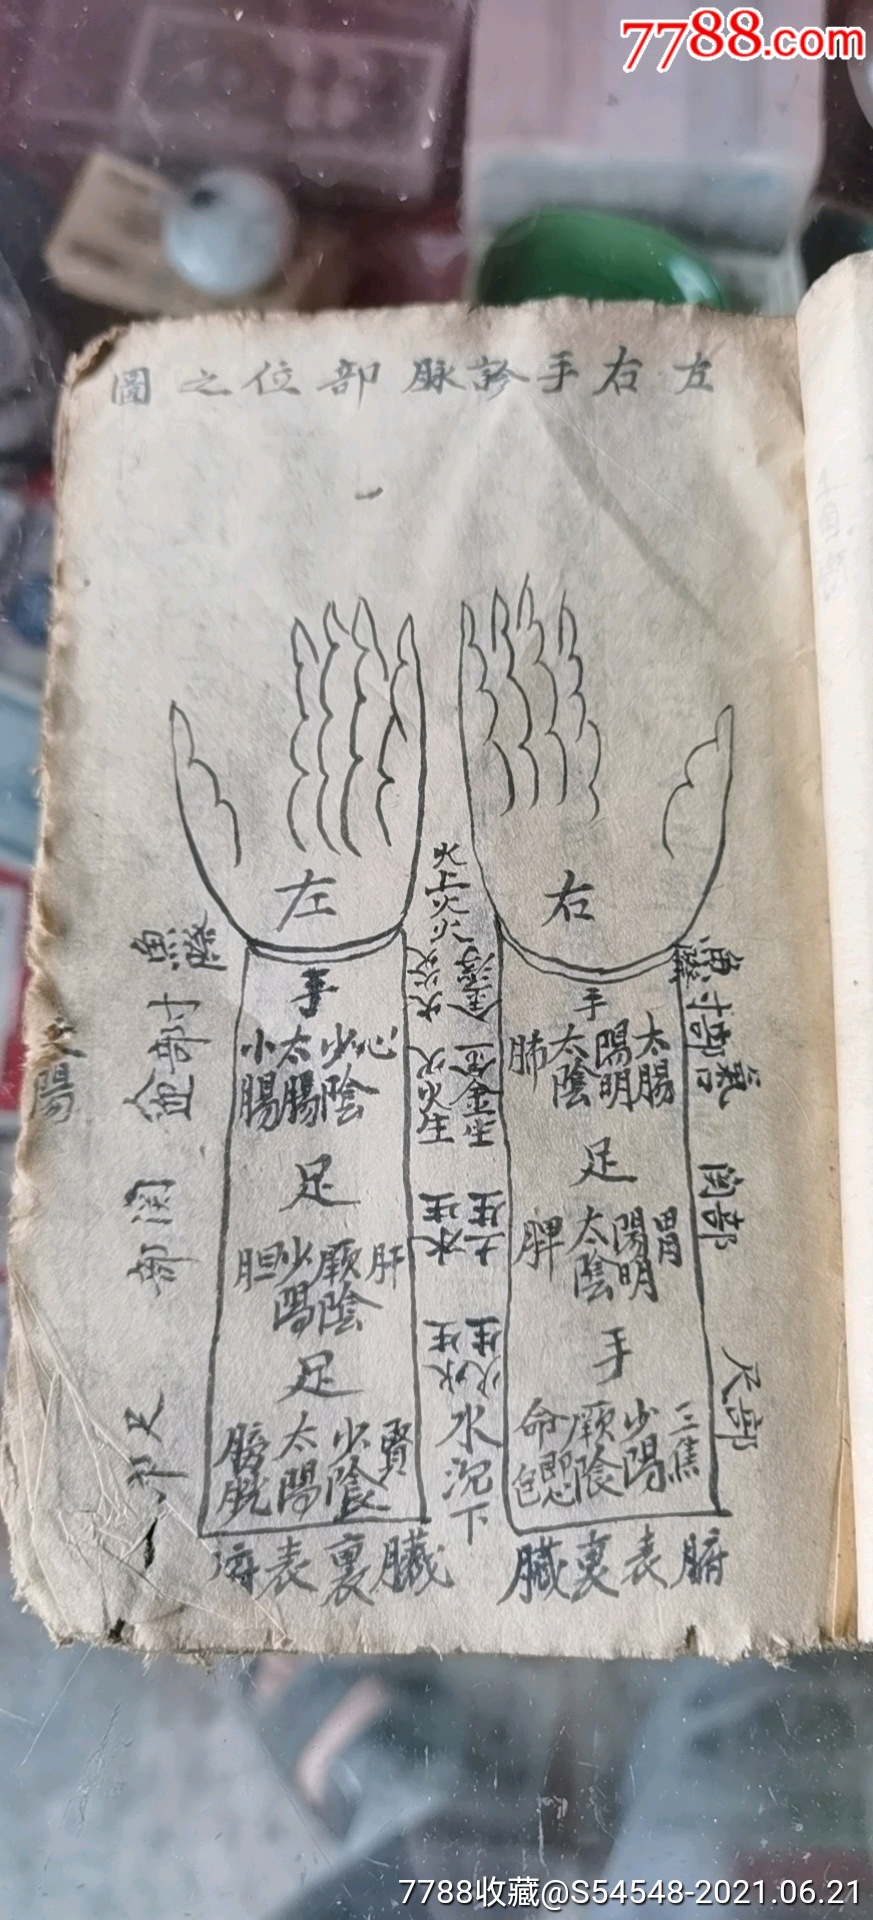 7788.com
左右手診脉部位之圖
左
右
魚際
寸部
血
関部
尺部
手
心
少陰
太腸
小腸
足
肝
厥陰
少陽
胆
足
腎
少陰
太陽
膀胱
臓裏表腑
火上
水沉下
魚際
寸部
氣口
関部
尺部
手
太腸
陽明
太陰
肺
足
胃
陽明
太陰
脾
手
三焦
少陽
厥陰
命即心包
腑表裏臓
7788收藏@S54548-2021.06.21